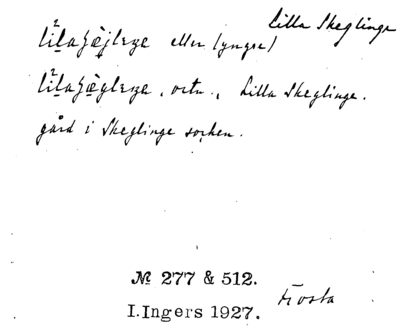 Lilla Skeglinge
eller (yngre)
ortn., Lilla Skeglinge.
gård i Skeglinge socken.
№ 277 & 512.
I. Ingers 1927.
Frosta